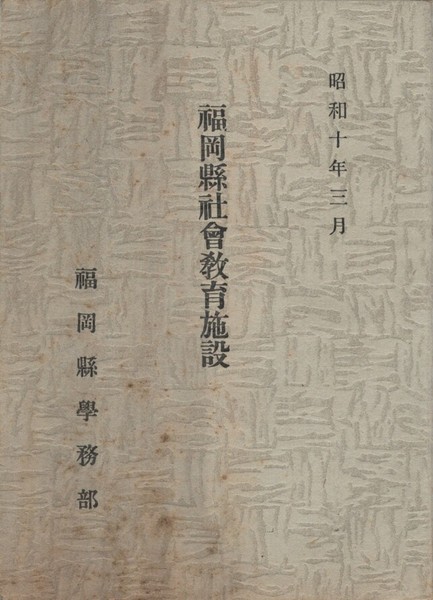 昭和十年三月
福岡縣社會教育施設
福岡縣學務部